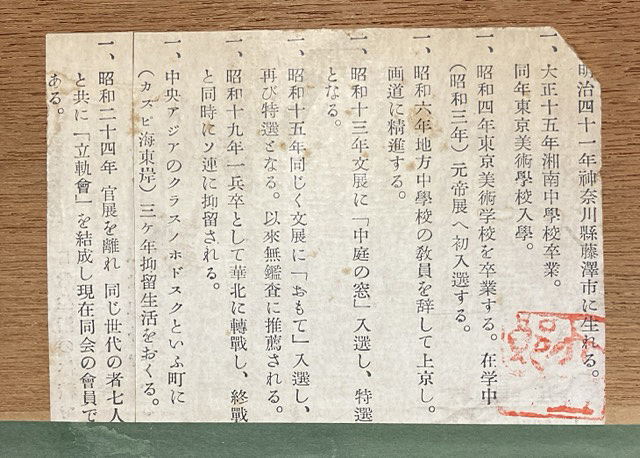 明治四十一年神奈川縣藤澤市に生れる。
一、大正十五年湘南中學校卒業。
同年東京美術學校入學。
一、昭和四年東京美術学校を卒業する。在学中
(昭和三年)元帝展へ初入選する。
一、昭和六年地方中學校の教員を辞して上京し。
画道に精進する。
一、昭和十三年文展に「中庭の窓」入選し、特選
となる。
一、昭和十五年同じく文展に「おもて」入選し、
再び特選となる。以來無鑑査に推薦される。
一、昭和十九年一兵卒として華北に轉戰し、終戰
と同時にソ連に抑留される。
一、中央アジアのクラスノホドスクといふ町に
(カスピ海東岸)三ケ年抑留生活をおくる。
一、昭和二十四年 官展を離れ 同じ世代の者七人
と共に「立軌會」を結成し現在同会の會員で
ある。